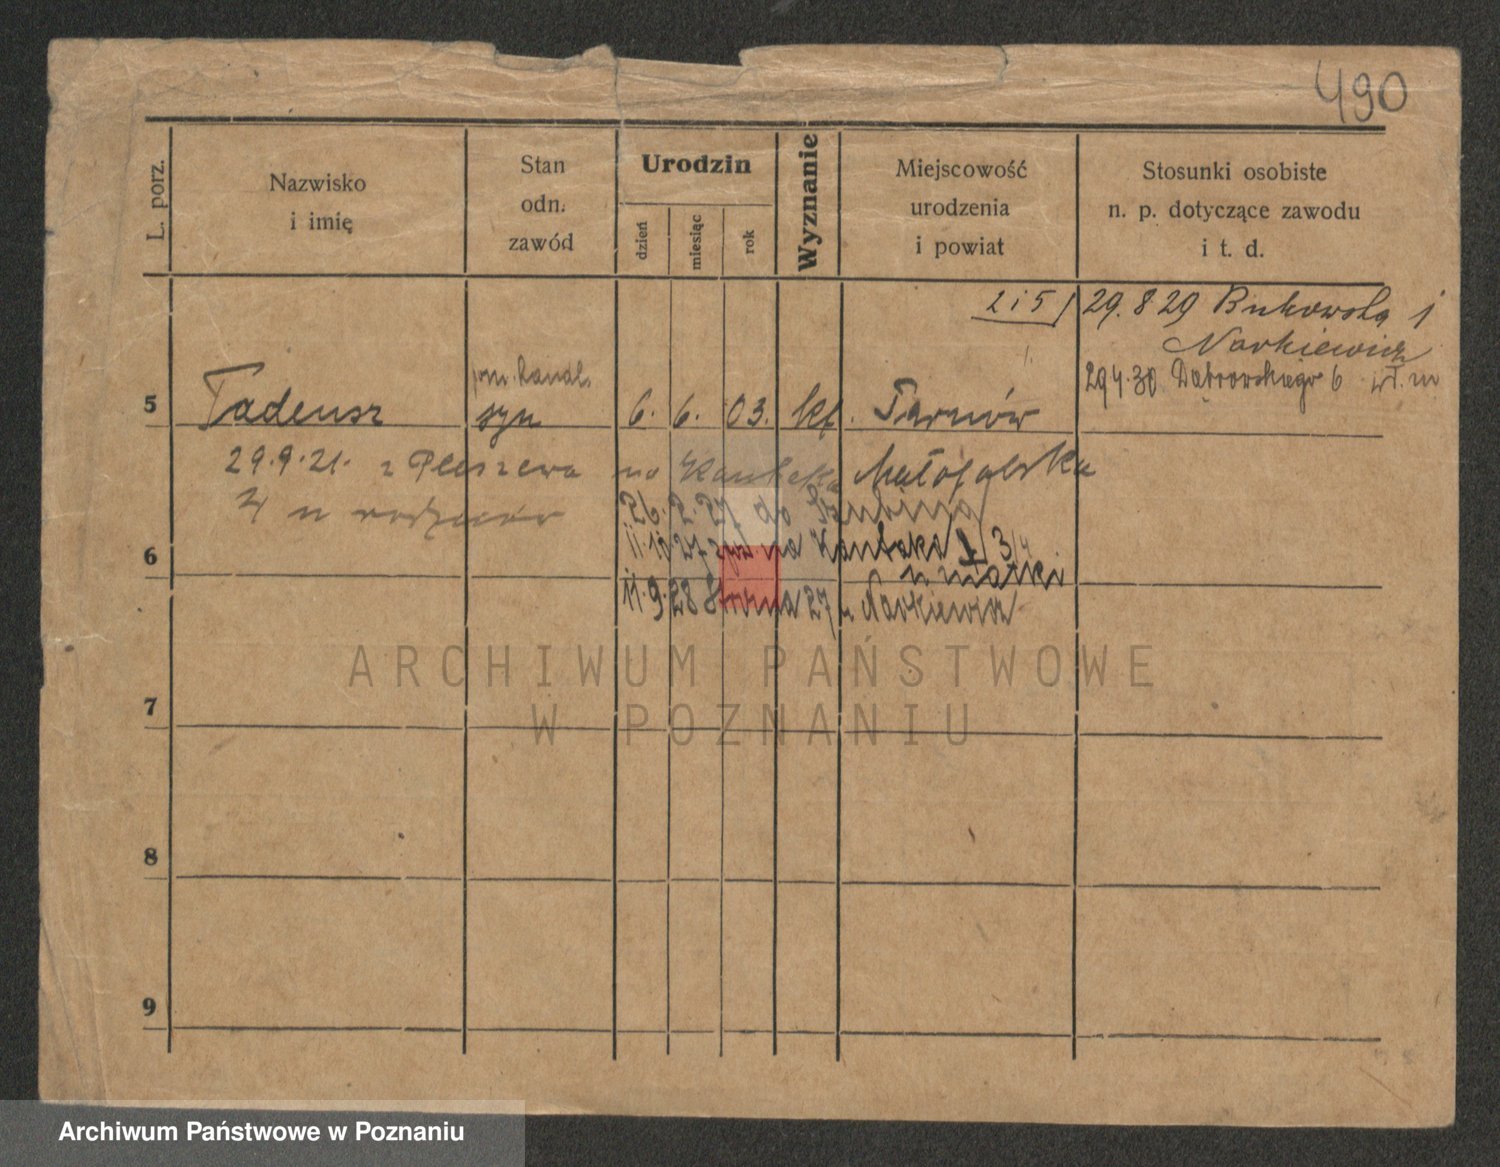 490
L. porz.
Nazwisko
i imię
Stan
odn.
zawód
Urodzin
dzień
miesiąc
rok
Wyznanie
Miejscowość
urodzenia
i powiat
Stosunki osobiste
n. p. dotyczące zawodu
i t. d.
2 i 5
29. 8 29 Bukowska 1
Narkiewicz
29 4. 30 Dąbrowskiego 6
5
Tadeusz
syn
6. 6. 03.
Tarnów
29. 9. 21. z Pleszewa na Kantaka
Małopolska
u rodziców
26. 2. 27 do Szubina
6
11. 10 27 na Kantaka 3/4
u matki
11. 9. 28 27 u Narkiewicz
ARCHIWUM PAŃSTWOWE
W POZNANIU
7
8
9
Archiwum Państwowe w Poznaniu